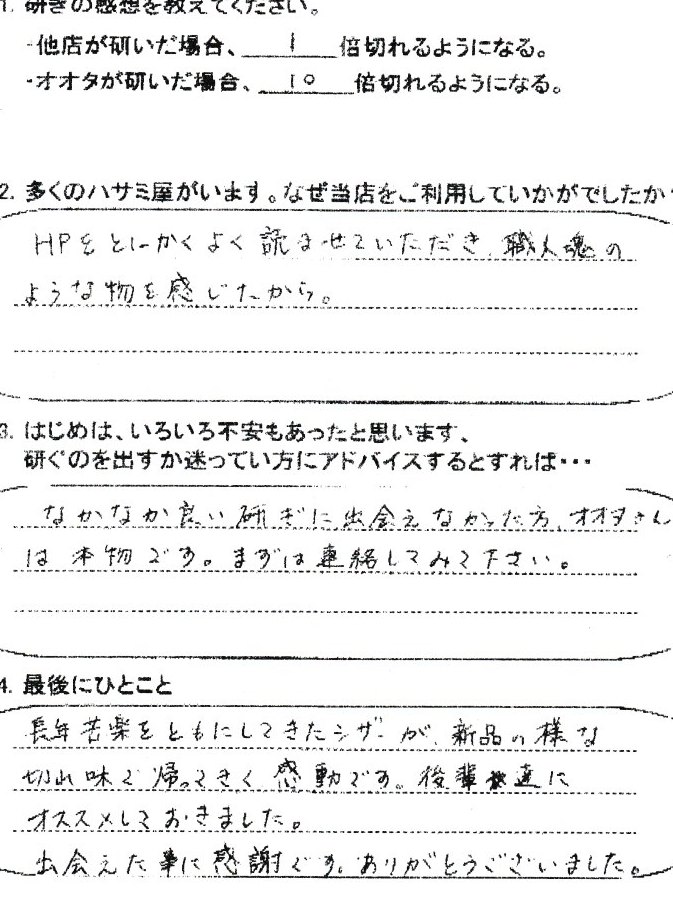 1. 研ぎの感想を教えてください。
-他店が研いだ場合、 1 倍切れるようになる。
-オオタが研いだ場合、 10 倍切れるようになる。
2. 多くのハサミ屋がいます。なぜ当店をご利用していかがでしたか
HPをとにかくよく読ませていただき、職人魂の
ような物を感じたから。
3. はじめは、いろいろ不安もあったと思います、
研ぐのを出すか迷ってい方にアドバイスするとすれば・・・
なかなか良い研ぎに出会えなかった方、オオタさん
は本物です。まずは連絡してみて下さい。
4. 最後にひとこと
長年苦楽をともにしてきたシザーが、新品の様な
切れ味で帰ってきて感動です。後輩達に
オススメしておきました。
出会えた事に感謝です。ありがとうございました。